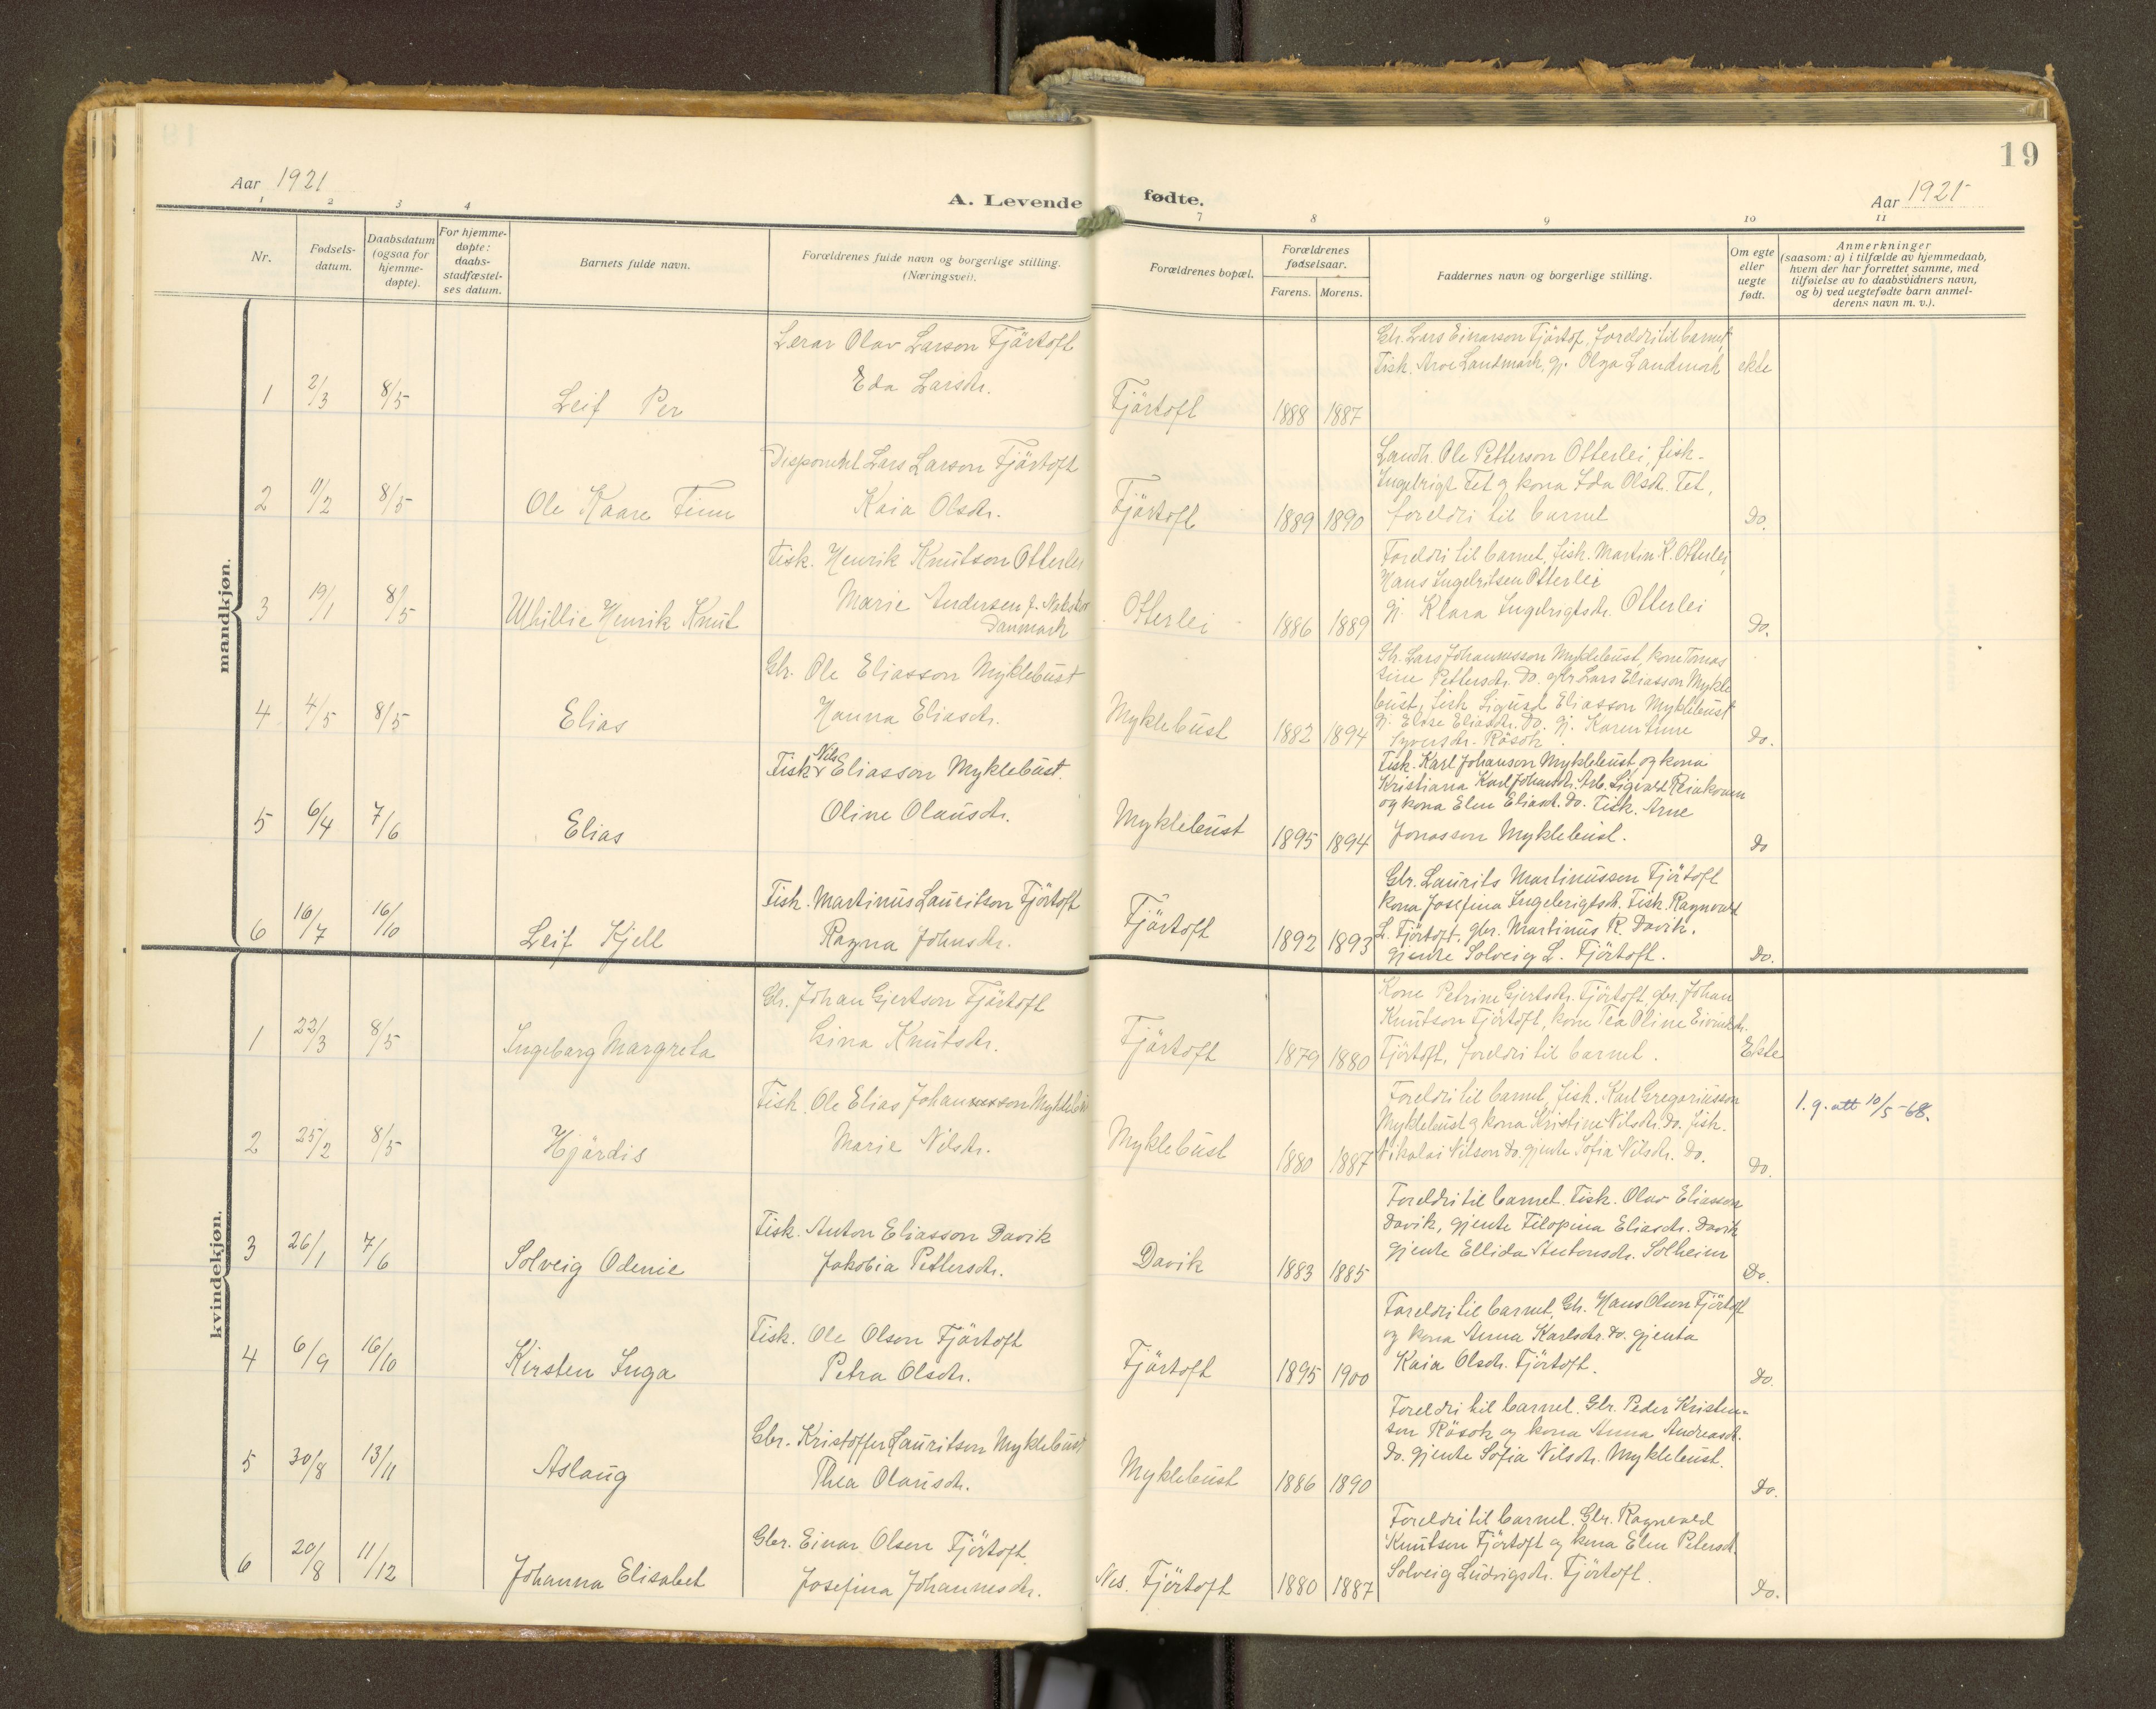 19
Aar 1921
A. Levende fødte.
Aar 1921
1 2 3 4 7 8 9 10 11
Nr.
Fødsels-
datum.
Daabsdatum
(ogsaa for
hjemme-
døpte).
For hjemme-
døpte:
daabs-
stadfæstel-
ses datum.
Barnets fulde navn.
Forældrenes fulde navn og borgerlige stilling.
(Næringsvei).
Forældrenes bopæl.
Forældrenes
fødselsaar.
Farens. Morens.
Faddernes navn og borgerlige stilling.
Om egte
eller
uegte
født.
Anmerkninger
(saasom: a) i tilfælde av hjemmedaab,
hvem der har forrettet samme, med
tilføielse av to daabsvidners navn,
og b) ved uegtefødte barn anmel-
derens navn m. v.).
mandkjøn.
1 2/3 8/5 Leif Per
Lærar Olav Larson Fjärtoft
Eda Larsdr.
Fjärtoft 1888 1887
Gbr. Lars Einarson Fjärtof, foreldri til barnet,
Fisk. Arve Landmark, gj. Olga Landmark ekte
2 11/2 8/5 Ole Kaare Finn
Disponent Lars Larson Fjärtoft
Kaia Olsdr.
Fjärtoft 1889 1890
Landh. Ole Petterson Otterlei, fisk-
Ingebrigt Tet og kona Ida Olsdr. Tet,
foreldri til barnet Do.
3 19/1 8/5 Whillie Henrik Knut
Fisk. Henrik Knutson Otterlei
Marie Andersen f.
Danmark
Otterlei 1886 1889
Foreldri til barnet, fisk. Martin K. Otterlei,
Hans Ingebritsen Otterlei
gj. Klara Ingebrigtsdr. Otterlei Do.
4 4/5 8/5 Elias
Gbr. Ole Eliasson Myklebust
Hanna Eliasdr.
Myklebust 1882 1894
Gbr. Lars Johannesson Myklebust, kone Tomas
sine Pettersdr. Do. gbr Lars Eliasson Mykle
bust, fisk Sigurd Eliasson Myklebust
gj. Elise Eliasdr. Do. gj. Karen Anne
Syversdr. Rösok. Do.
5 6/4 7/6 Elias
Fisk. Nils Eliasson Myklebust.
Oline Olausdr.
Myklebust 1895 1894
Fisk. Karl Johanson Myklebust og kona
Kristiana Karl Johansdr. Arb. Sigvald
og kona Elen Eliasd. Do. Fisk. Arne
Jonasson Myklebust. Do
6 16/7 16/10 Leif Kjell
Fisk. Martinus Lauritson Fjörtoft
Ragna Johnsdr.
Fjärtoft 1892 1893
Gbr. Laurits Martinusson Fjörtoft
kona Josefina Ingebrigtsdr. Fisk. Ragnvald
L. Fjörtoft, gbr. Martinus R. Davik.
gjente Solveig L. Fjörtoft. Do.
kvindekjøn.
1 22/3 8/5 Ingebarg Margreta
Gbr. Johan Gjertson Fjärtoft
Lina Knutsdr.
Fjärtoft 1879 1880
Kone Petrine Gjertsdr. Fjörtoft, gbr. Johan
Knutson Fjörtoft, kone Tea Oline
Fjörtoft, foreldri til barnet. Ekte
2 25/2 8/5 Hjärdis
Fisk. Ole Elias Johannesson Myklebust
Marie Nilsdr.
Myklebust 1880 1887
Foreldri til barnet, fisk. Karl Gregoriusson
Myklebust og kona Kristine Nilsdr. Do. fisk.
Nikolai Nilson Do. gjente Sofia Nilsdr. Do. Do.
1.g. att 10/5-68.
3 26/1 7/6 Solveig Odenie
Fisk. Anton Eliasson Davik
Jakobia Pettersdr.
Davik 1883 1885
Foreldri til barnet. Fisk. Olav Eliasson
Davik, gjente Filopina Eliasdr. Davik
gjente Ellida Antonsdr. Solheim Do.
4 6/9 16/10 Kirsten Inga
Fisk. Ole Olson Fjärtoft
Petra Olsdr.
Fjärtoft 1895 1900
Foreldri til barnet, Gbr. Hans Olsen Fjörtoft
og kona Anna Karlsdr. Do. gjenta
Kaia Olsdr. Fjörtoft. Do.
5 30/8 13/11 Aslaug
Gbr. Kristoffer Lauritson Myklebust
Thea Olausdr.
Myklebust 1886 1890
Foreldri til barnet. Gbr. Peder Kristen-
sen Rösok og kona Anna Andreasdr.
Do. gjente Sofia Nilsdr. Myklebust. Do.
6 20/8 11/12 Johanna Elisabet
Gbr. Einar Olsen Fjörtoft
Josefina Johannesdr.
Nes. Fjörtoft 1880 1887
Foreldri til barnet. Gbr. Ragnvald
Knutsen Fjörtoft og kona Elen Petersdr.
Solveig Ludvigsdr. Fjörtoft. Do.